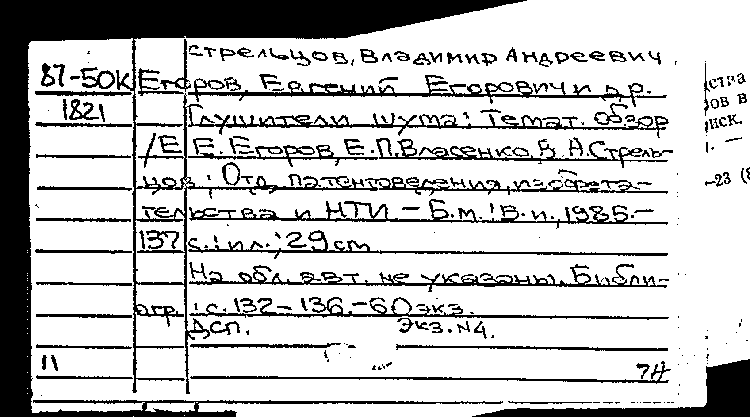 стрельцов, Владимир Андреевич.
87-50К Егоров, Евгений Егорович и др.
1821 Глушители шума: Темат. обзор
/Е Е. Егоров, Е.П. Власенко, В. А. Стрель-
цов; Отд. патентоведения, изобрета-
тельства и НТИ. - Б.м.: Б.и., 1985.-
137 с.: ил.; 29 cm
На обл. авт. не указаны. Библи-
огр.: с. 132-136. - 60 экз.
Дсп. Экз. N4.
11 74
ства
ов в
нск.
-23 (8